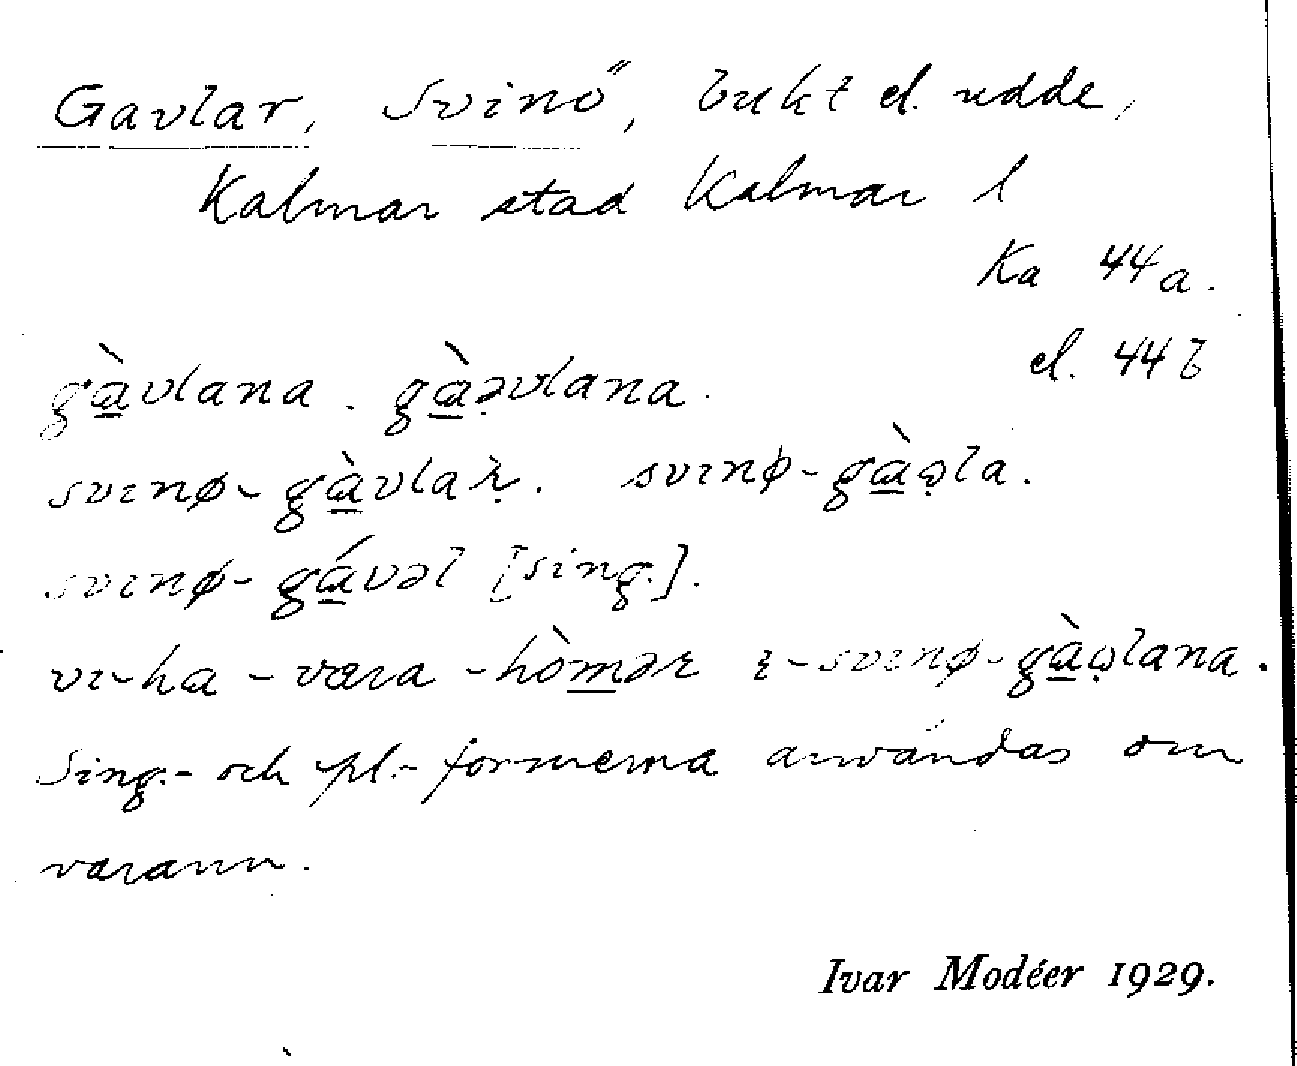 Gavlar, Svinö, bukt el. udde,
Kalmar stad Kalmar l
Ka 44a.
el. 44b
gà̱vlana. gà̱ə̣vlana.
svɪnø-gà̱vlaɀ̣. svɪnø-gà̱ə̣la.
svɪnø-gá̱vəl [sing.].
vɪ-ha-væra-hòm̱ər ɪ-svɪnø-gà̱ə̣lana.
Sing.- och pl.-formerna användas om
varann.
Ivar Modéer 1929.